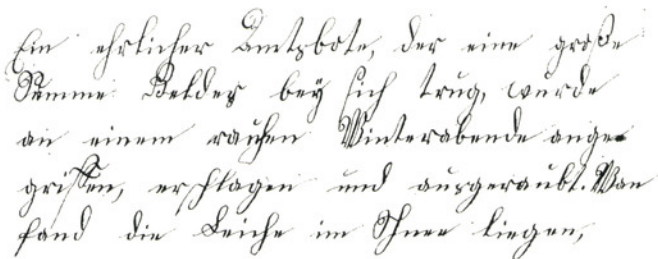 Ein ehrlicher Amtsbote, der eine große
Summe Geldes bey sich trug, wurde
an einem rauhen Winterabende ange-
griffen, erschlagen und ausgeraubt. Man
fand die Leiche im Schnee liegen,